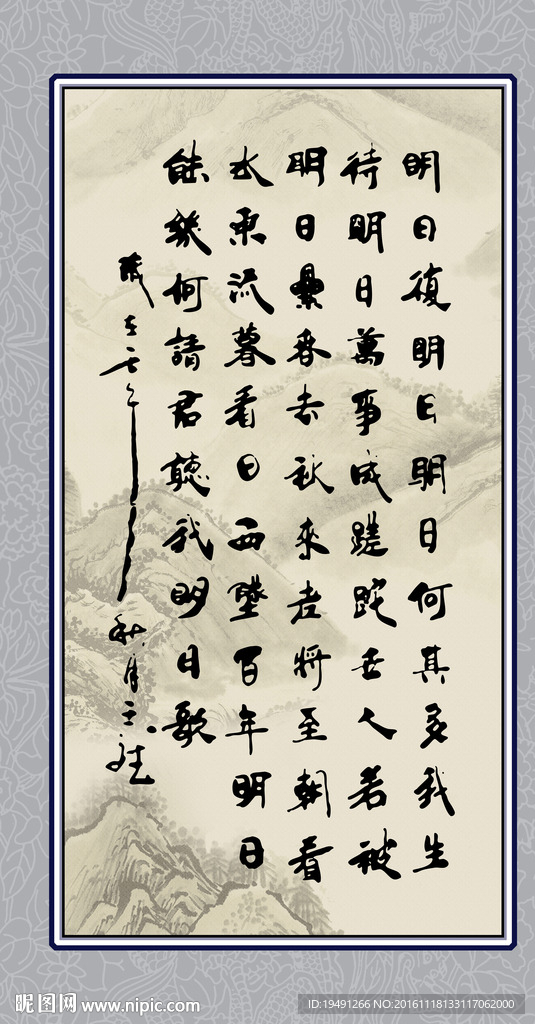 明日復明日明日何其多我生
待明日萬事成蹉跎世人若被
明日纍春去秋來老將至朝看
水東流暮看日西墜百年明日
能幾何請君聽我明日歌
年
秋月
昵图网 www.nipic.com
ID:19491266 NO:20161118133117062000